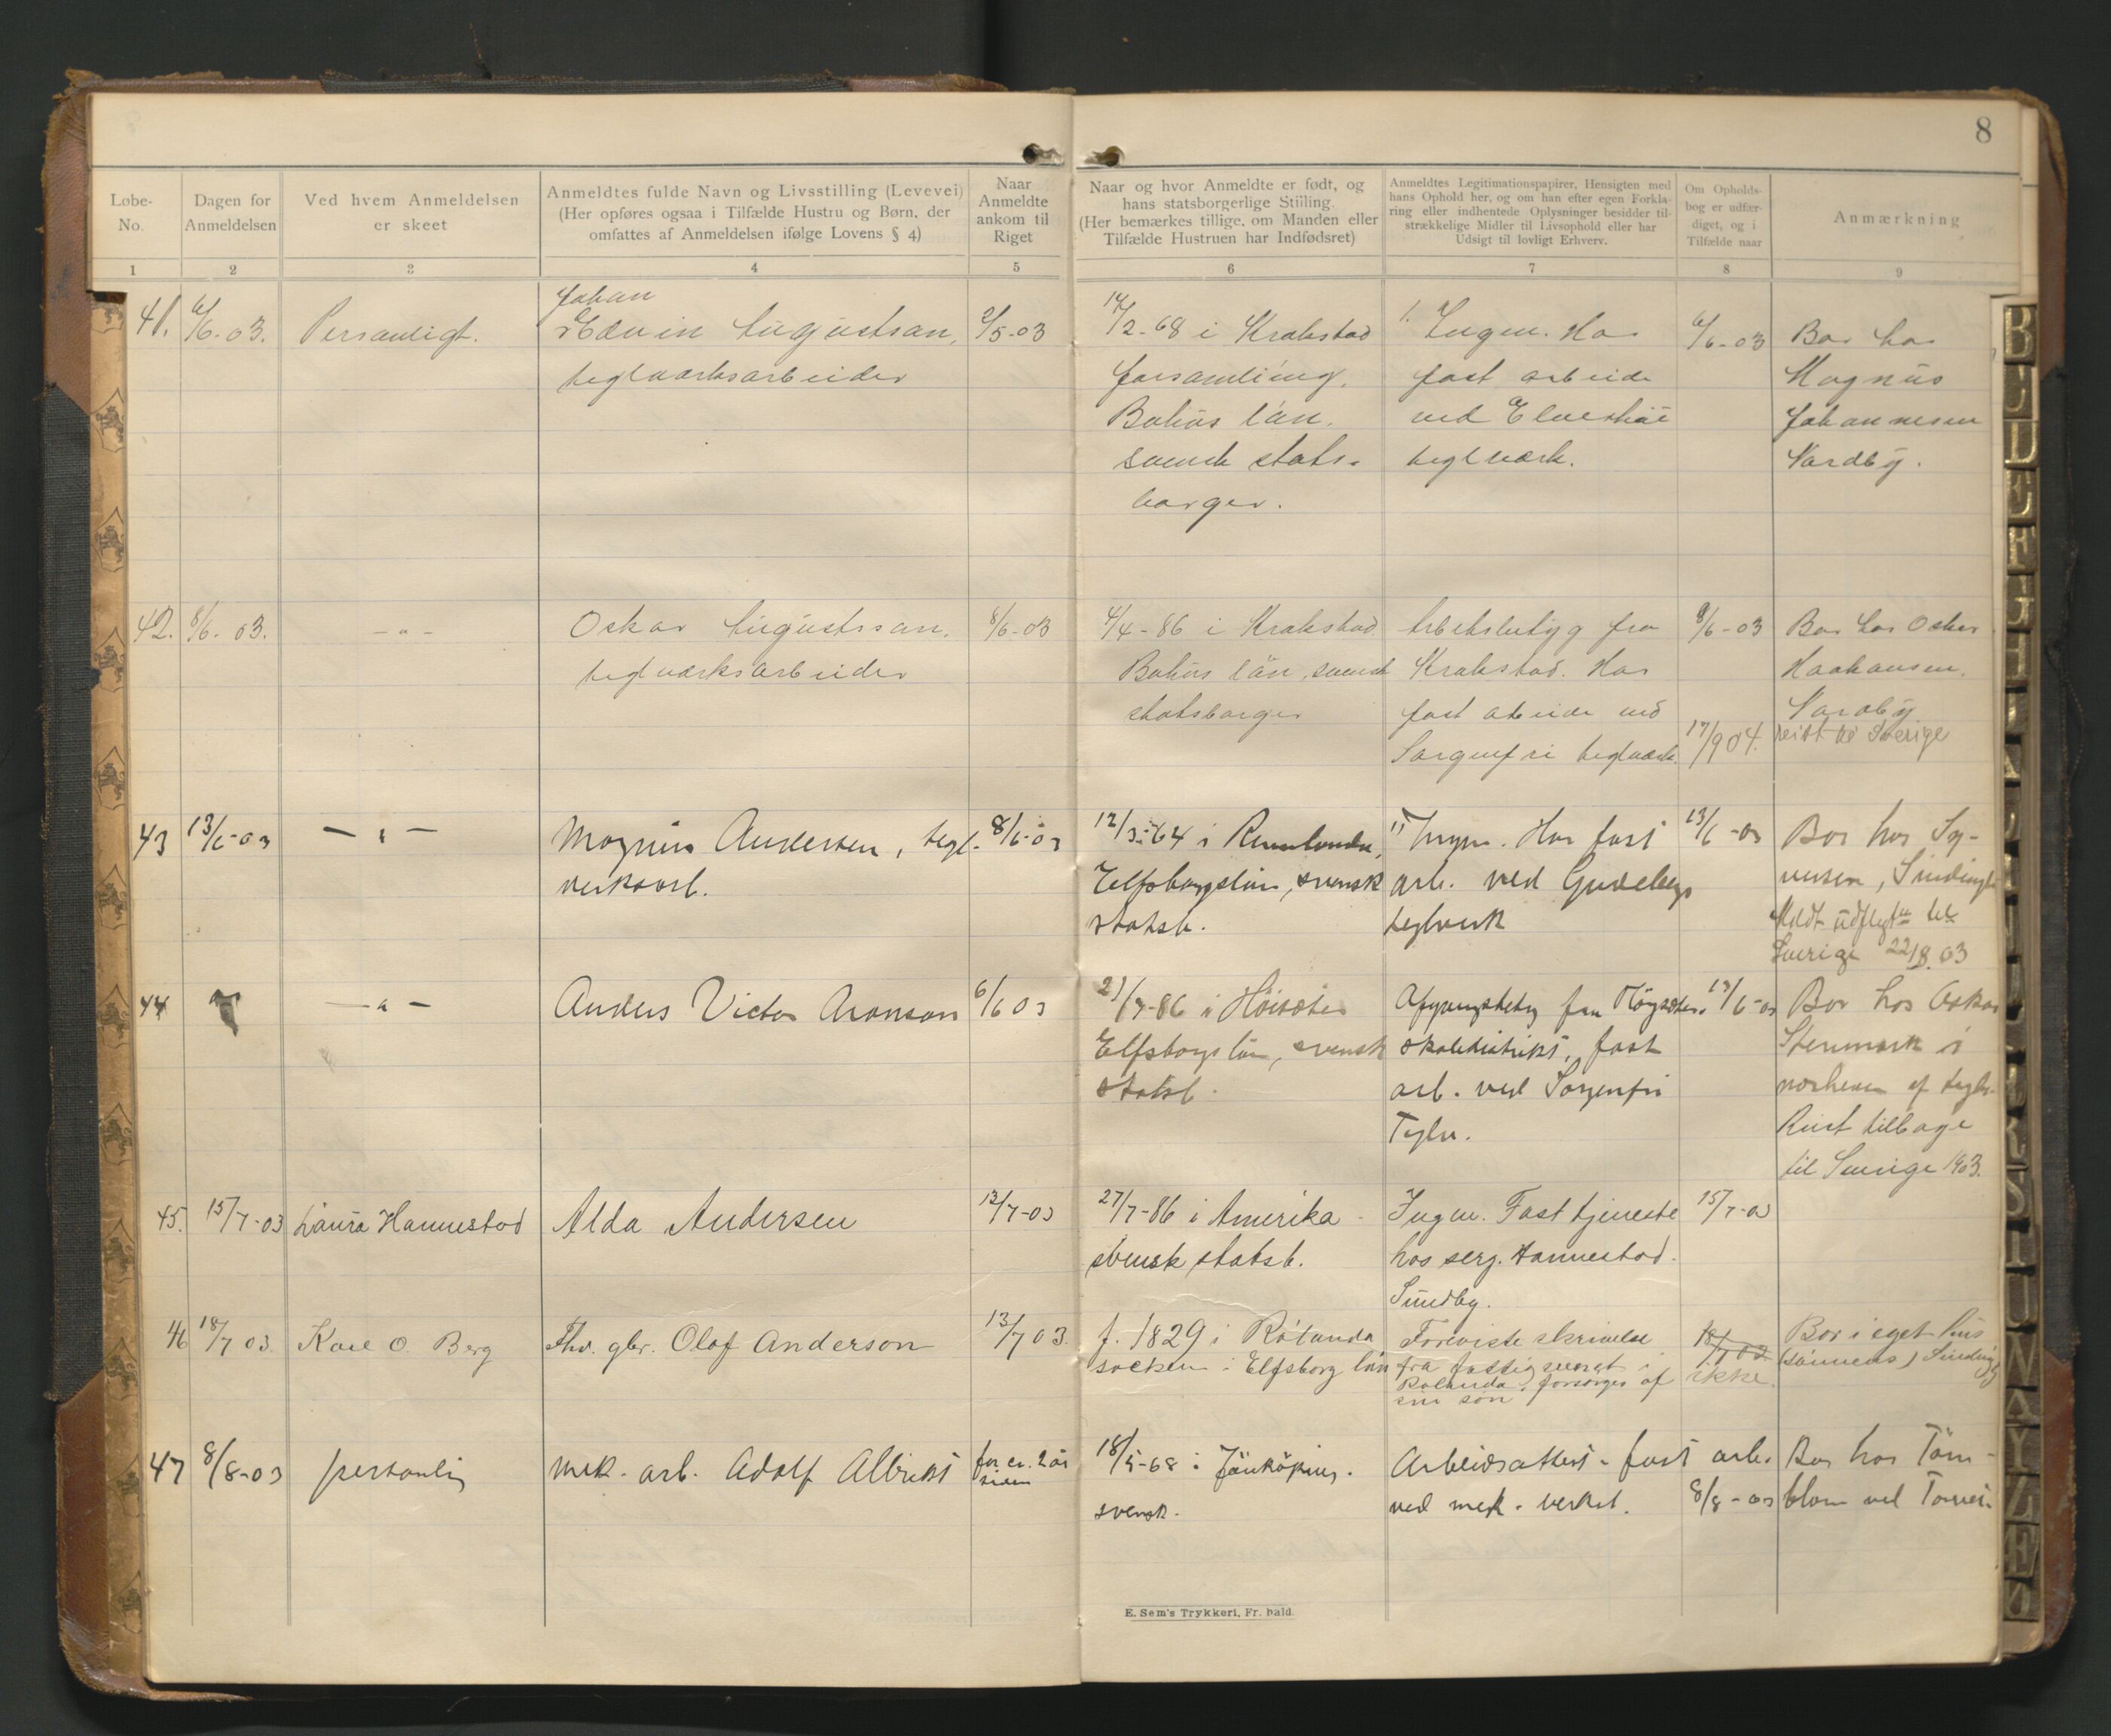 8
Løbe-
No.
Dagen for
Anmeldelsen
Ved hvem Anmeldelsen
er skeet
Anmeldtes fulde Navn og Livsstilling (Levevei)
(Her opføres ogsaa i Tilfælde Hustru og Børn, der
omfattes af Anmeldelsen ifølge Lovens § 4)
Naar
Anmeldte
ankom til
Riget
Naar og hvor Anmeldte er født, og
hans statsborgerlige Stiiling.
(Her bemærkes tillige, om Manden eller
Tilfælde Hustruen har Indfødsret)
Anmeldtes Legitimationspapirer, Hensigten med
hans Ophold her, og om han efter egen Forkla-
ring eller indhentede Oplysninger besidder til-
strækkelige Midler til Livsophold eller har
Udsigt til lovligt Erhverv.
Om Opholds-
bog er udfær-
diget, og i
Tilfælde naar
Anmærkning
1 2 3 4 5 6 7 8 9
41.
6/6-03.
Personligt.
Johan
Edvin Augustsan,
teglværksarbeider
2/5-03
14/2-68 i Krokstad
forsamling,
Bohus län.
svensk stats-
borger.
1. Ingen. Har
fast arbeide
ved Elveshöi
teglværk.
6/6-03
Bor hos
Magnus
Johannesen
Nordby.
42.
8/6. 03.
- " -
Oskar Augustssan,
teglværksarbeider
8/6-03
4/4-86 i Krokstad
Bohus län, svensk
statsborger
Arbetsbetyg fra
Krokstad. Har
fast arbeide ved
Sorgenfri teglværk.
8/6-03
17/9 04.
Bor hos Osker
Haakansen,
reist til Sverige
43
13/6-03
- " -
Magnus Andersen, tegl.
verksarb.
8/6-03
12/3-64 i
Elfsborgslän, svensk
statsb.
1) Ingen. Har fast
arb. ved Gudebergs
teglverk
13/6-03
Bor hos Sy-
versen,
Meldt udflyttet til
Sverige 22/8.03
44
"
- " -
Anders Victor Aronson
6/6 03
21/3-86 i Höisäter
Elfsborgs län, svensk
statsb.
Afgangsbetyg fra Högsäter
skoledistrikt, fast
arb. ved Sorgenfri
Teglv.
13/6-03
Bor hos Oskar
Stenmark i
nærheden af teglv.
Reist tilbage
til Sverige 1903.
45.
15/7-03
Laura Hannestad
Alda Andersen
12/7-03
27/7-86 i Amerika -
svensk statsb.
Ingen. Fast tjeneste
hos serg. Hannestad.
Sundby.
15/7-03
46
18/7 03.
Karl O. Berg
Fhv. gbr. Olof Anderson
13/7 03.
f. 1829 i Rölanda
socken i Elfsborg län
Foreviste skrivelse
fra fattigvesenet i
Rölanda, forsörges af
sin sön
18/7 03
ikke.
Bor i eget hus
(sönnens)
47
8/8-03
personlig
mek. arb. Adolf Albrekt
for ca. 2 år
siden
18/5-68 i Jönköping.
svensk.
Arbeidsattest - fast arb.
ved mek. verkst.
8/8-03
Bor hos Törn-
blom ved
E. Sem's Trykkeri, Fr. hald.
B
D
E
F
G
H